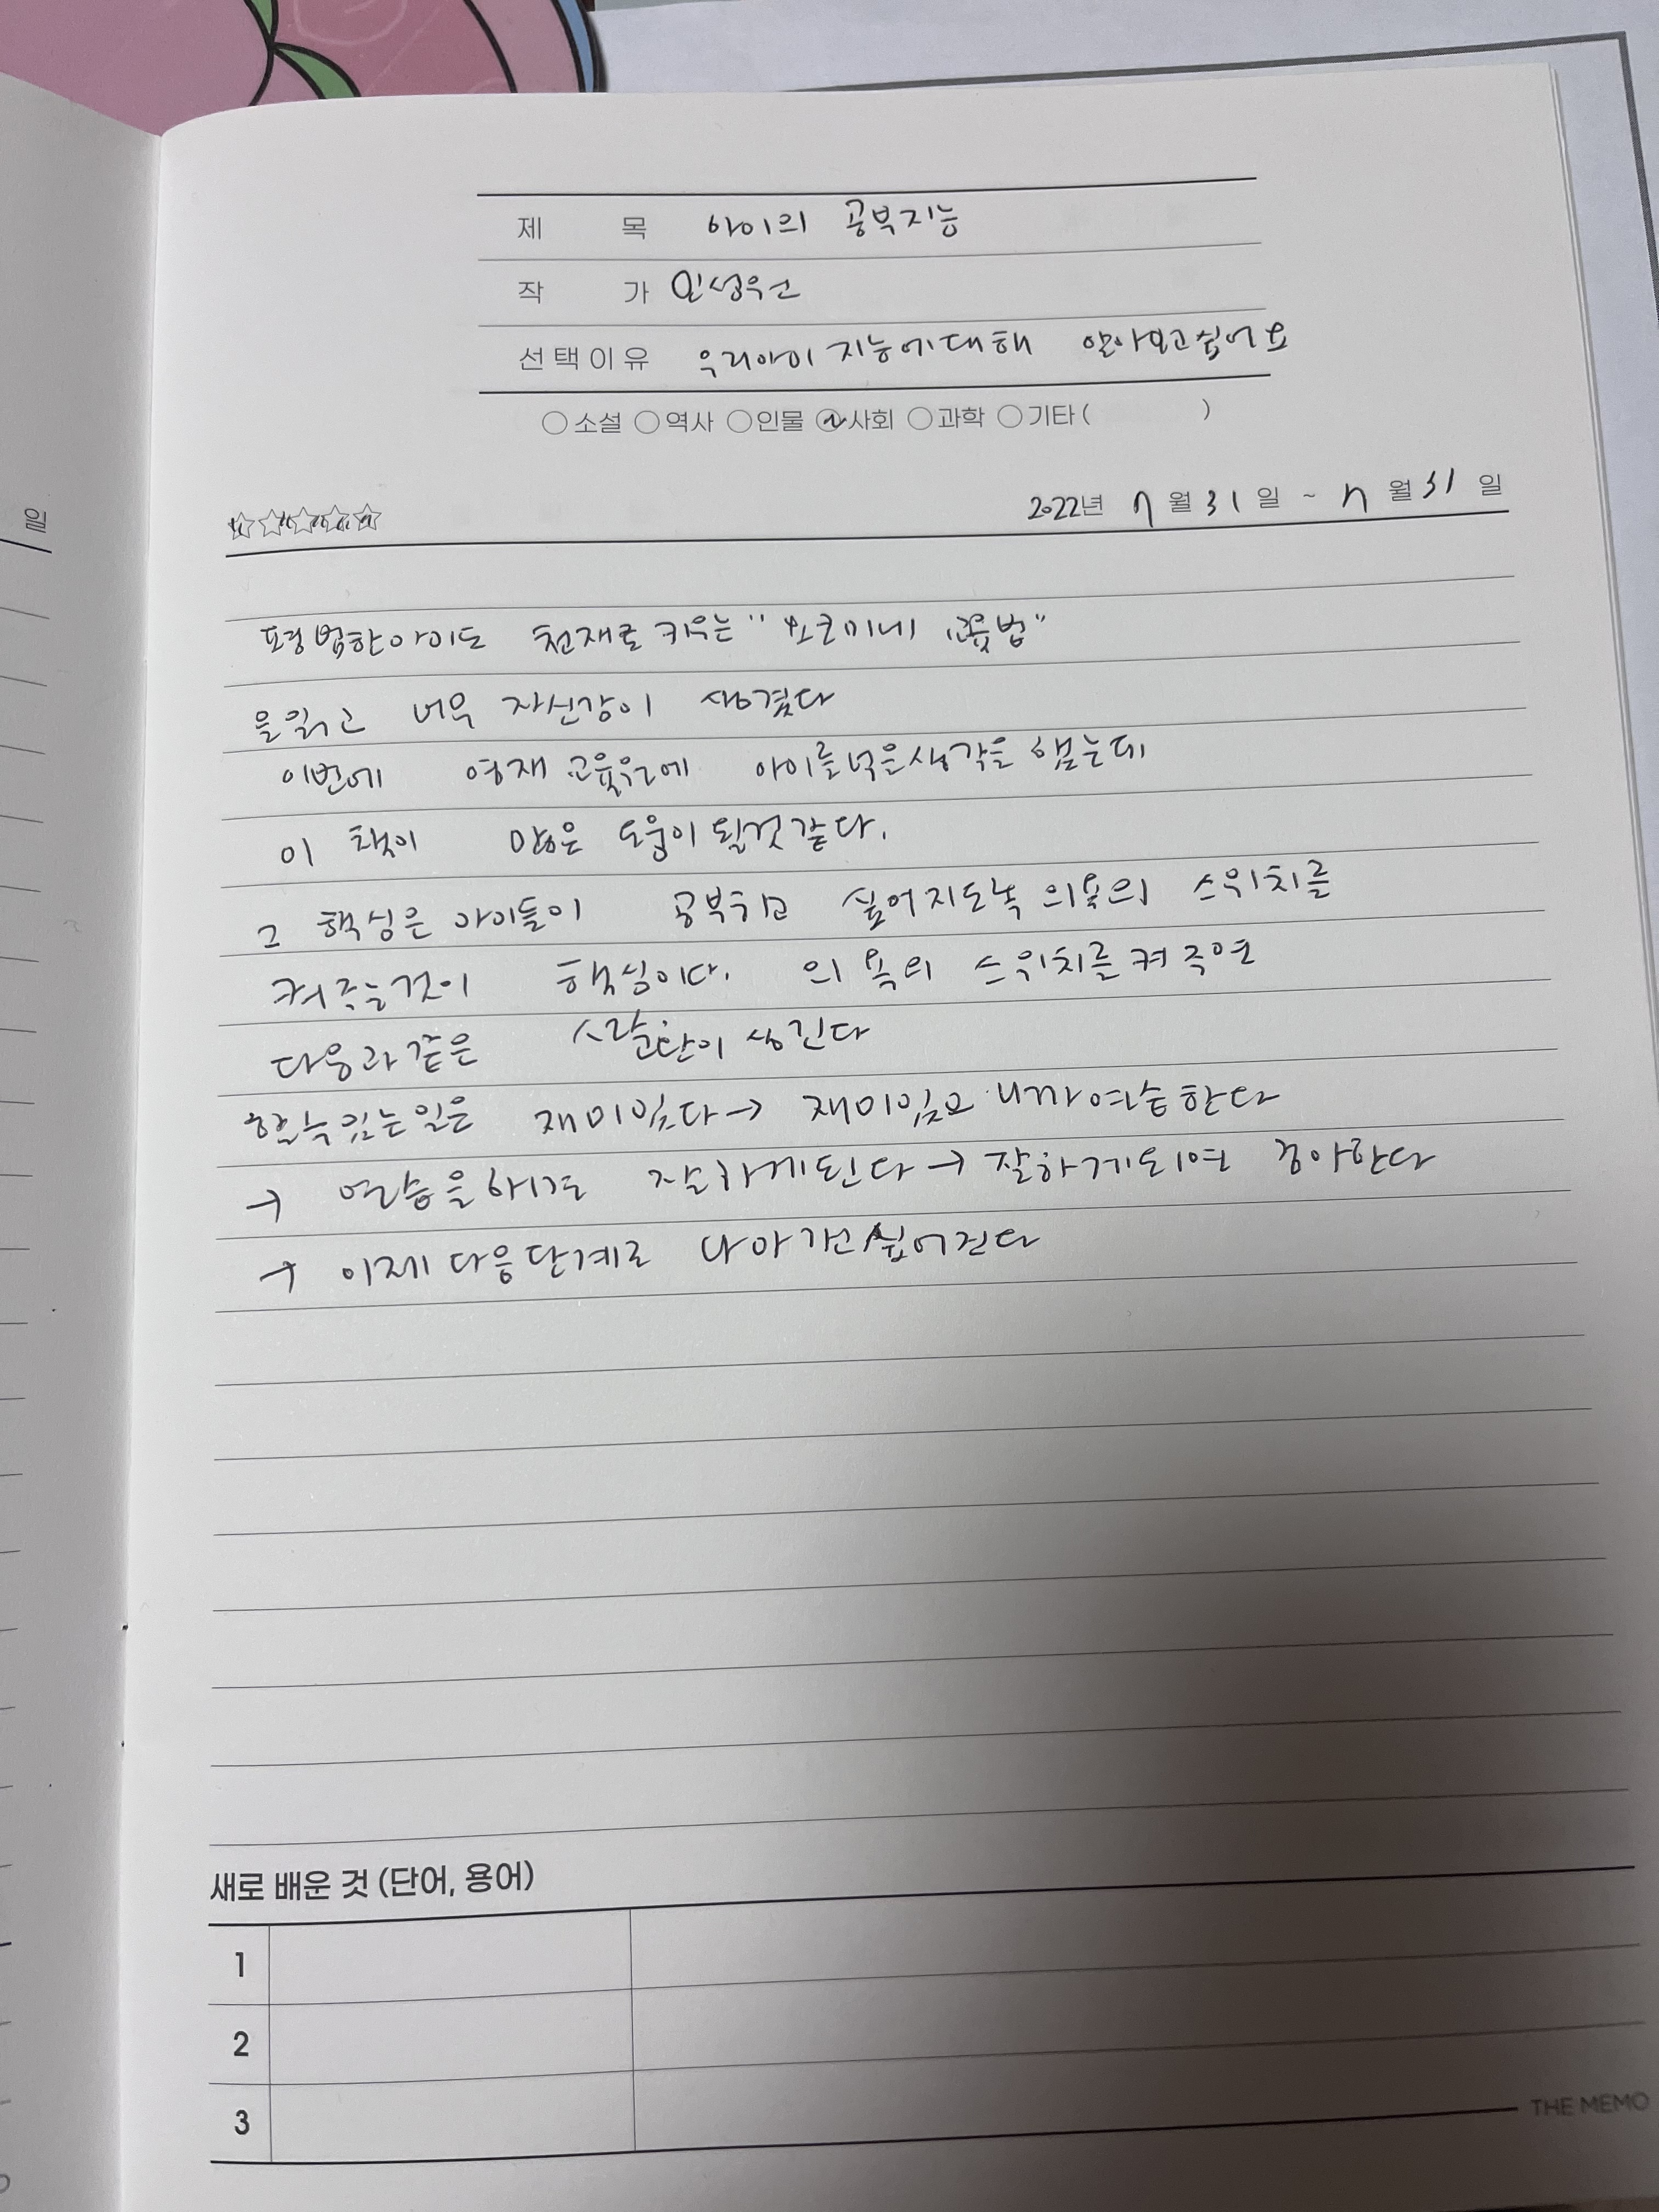 제 목 아이의 공부지능
작 가 민성원
선택이유 우리아이 지능에대해 알아보고싶어요
소설 역사 인물 사회 과학 기타 ( )
일
2022년 7월 31일 ~ 7월 31일
평범한아이도 천재로 키우는 "요코미네 교육법"
을읽고 너무 자신감이 생겼다
이번에 영재 교육원에 아이를넣은생각을 했는데
이 책이 많은 도움이 될것같다.
그 핵심은 아이들이 공부하고 싶어지도록 의욕의 스위치를
켜주는것이 핵심이다. 의욕의 스위치를켜주면
다음과 같은 이 생긴다
할수있는일은 재미있다 → 재미있으니까연습한다
→ 연습을하면 잘하게된다 → 잘하게되면 좋아한다
→ 이제다음단계로 나아가고싶어진다
새로 배운 것 (단어, 용어)
1
2
3
THE MEMO